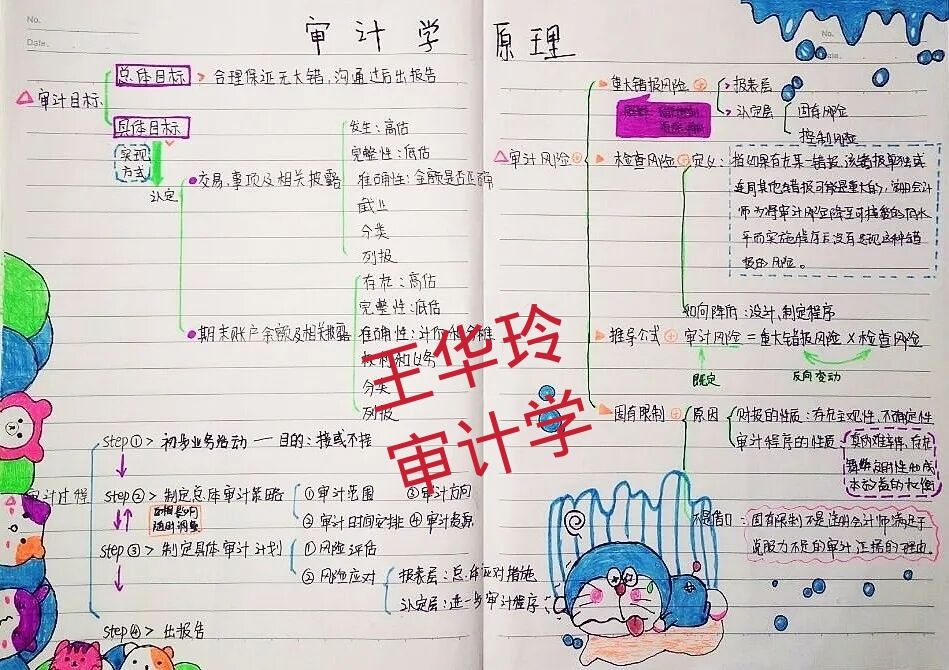 No.
Date.
审计学
原理
No.
Date.
△审计目标
总体目标 > 合理保证无大错,沟通过后出报告
具体目标
实现
方式
认定
交易、事项及相关披露
发生:高估
完整性:低估
准确性:金额是否正确
截止
分类
列报
期末账户余额及相关披露
存在:高估
完整性:低估
准确性:计价和分摊
权利和义务
分类
列报
王华玲
审计学
审计过程
step① > 初步业务活动 — 目的:接或不接
step② > 制定总体审计策略
①审计范围 ③审计方向
②审计时间安排 ④审计资源
随时调整
step③ > 制定具体审计计划
①风险评估
②风险应对
报表层:总体应对措施
认定层:进一步审计程序
step④ > 出报告
△审计风险
重大错报风险
> 报表层
> 认定层
固有风险
控制风险
检查风险
定义:指如果存在某一错报,该错报单独或
连同其他错报可能是重大的,注册会计
师为将审计风险降至可接受的低水
平而实施程序后没有发现这种错
报的风险。
如何降低:设计、制定程序
推导公式
审计风险 = 重大错报风险 × 检查风险
既定
反向变动
固有限制
原因
财报的性质:存在主观性、不确定性
审计程序的性质
不是借口:固有限制不是注册会计师满足于
说服力不足的审计证据的理由。